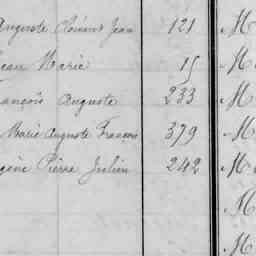 Auguste Clément Jean 121 M
Jean Marie 15 M
François Auguste 233 M
Marie Auguste François 379 M
Eugène Pierre Julien 242 M
M
M